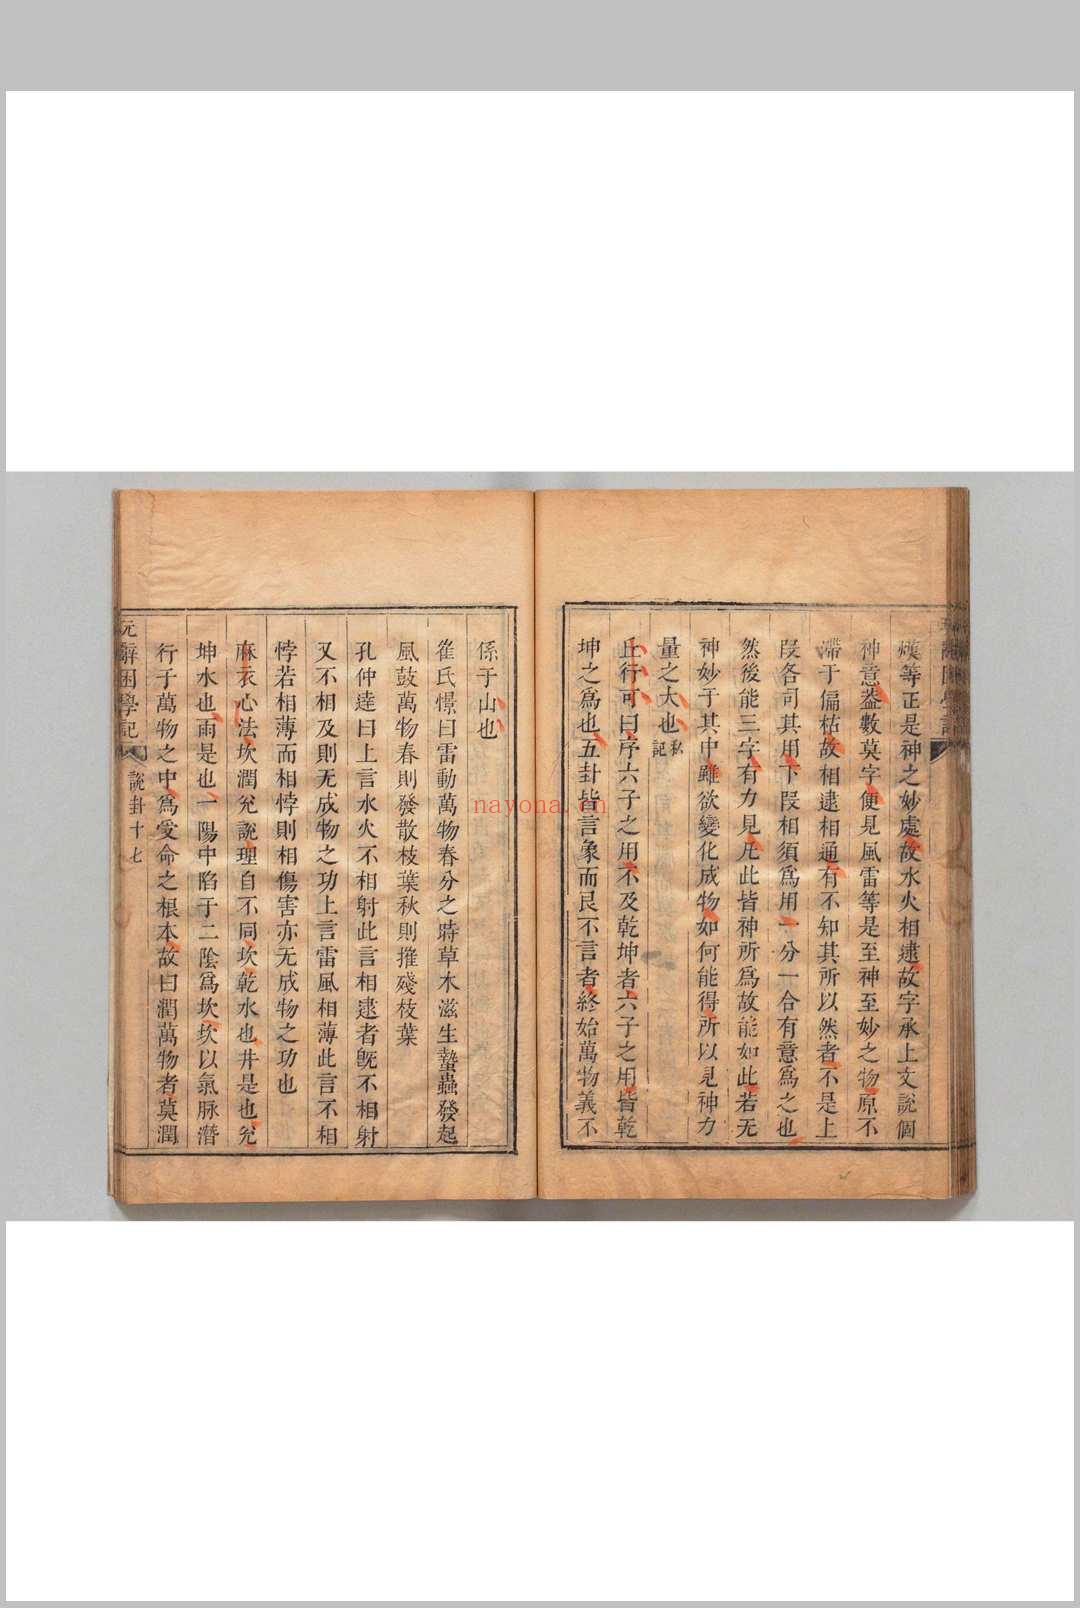 熯等正是神之妙處故水火相逮故字承上文說個
神意葢數莫字便見風雷等是至神至妙之物原不
滯于偏枯故相逮相通有不知其所以然者不是上
段各司其用下段相須爲用一分一合有意爲之也
然後能三字有力見凡此皆神所爲故能如此若无
神妙于其中雖欲變化成物如何能得所以見神力
量之大也私記
丘行可曰序六子之用不及乾坤者六子之用皆乾
坤之爲也五卦皆言象而艮不言者終始萬物義不
係于山也
崔氏憬曰雷動萬物春分之時草木滋生蟄蟲發起
風鼓萬物春則發散枝葉秋則摧殘枝葉
孔仲達曰上言水火不相射此言相逮者旣不相射
又不相及則无成物之功上言雷風相薄此言不相
悖若相薄而相悖則相傷害亦无成物之功也
麻衣心法坎潤兌說理自不同坎乾水也井是也兌
坤水也雨是也一陽中陷于二陰爲坎坎以氣脉潛
行于萬物之中爲受命之根本故曰潤萬物者莫潤
辭困學記
說卦十七
nayona.cn